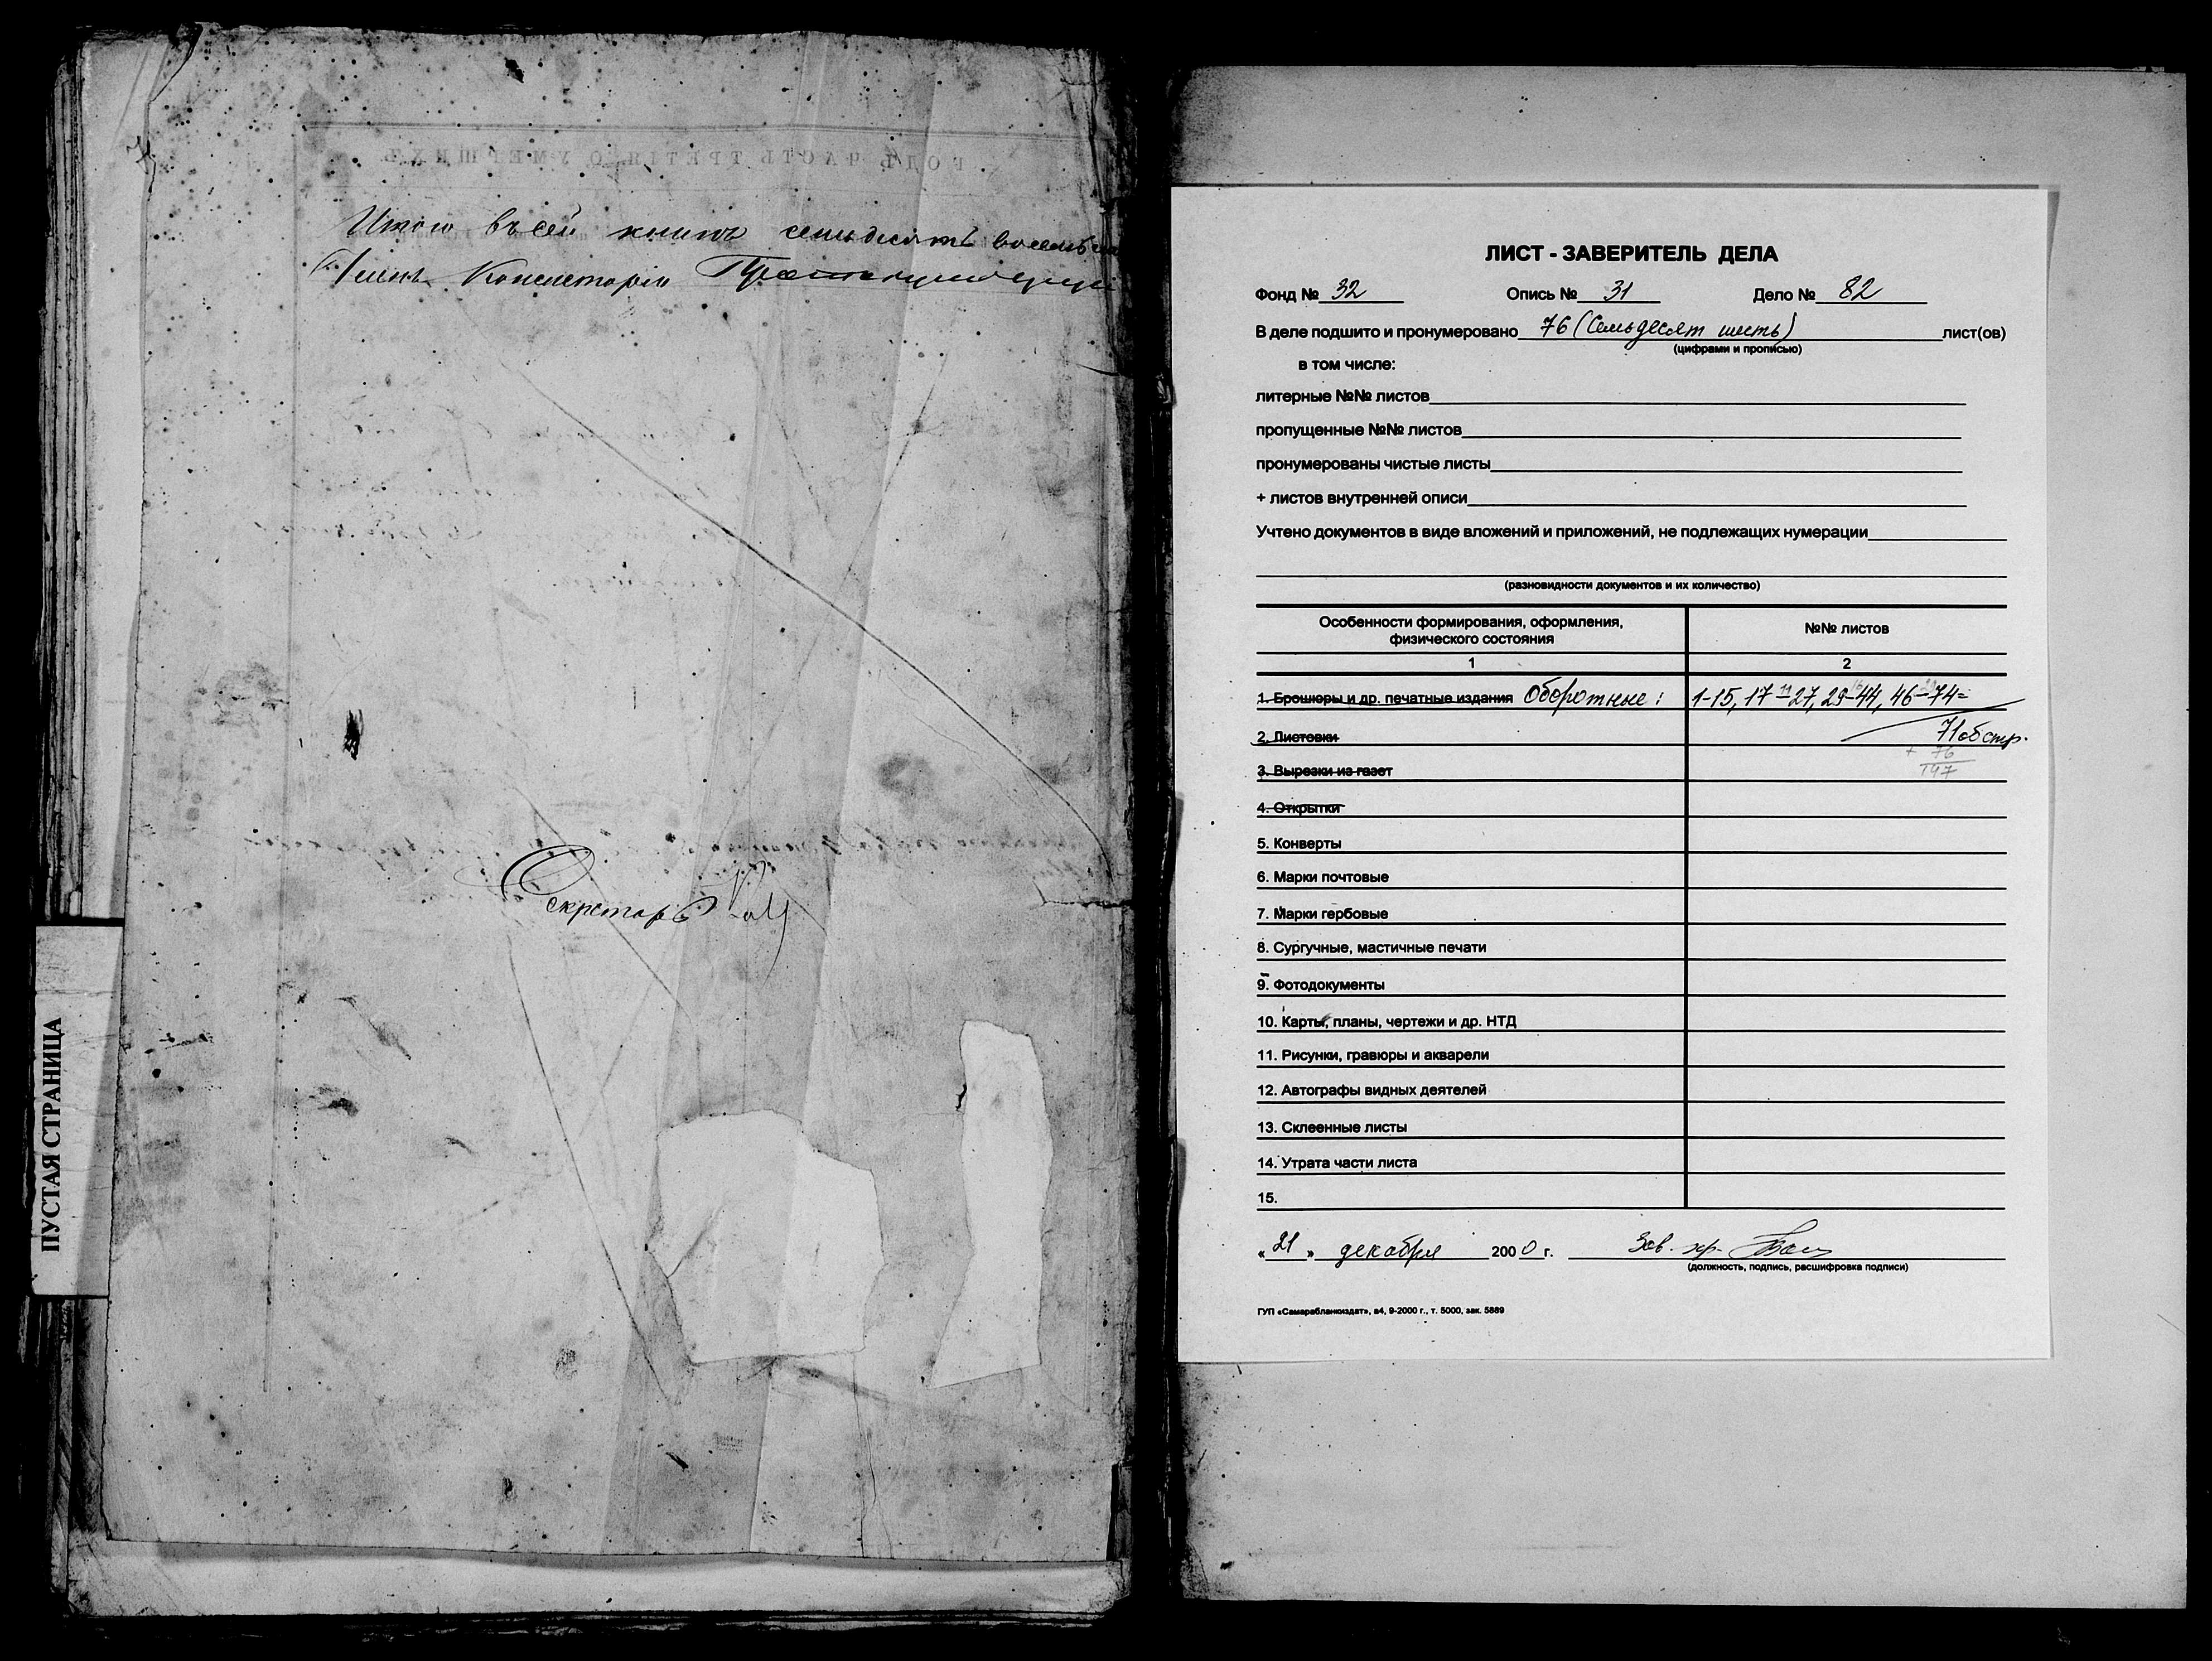 ГОДЪ ЧАСТЬ ТРЕТІЯ, О УМЕРШИХЪ
Итого въ сей книгѣ семьдесятъ восемь
Членъ Консисторіи
Секретарь
ПУСТАЯ СТРАНИЦА
ЛИСТ - ЗАВЕРИТЕЛЬ ДЕЛА
Фонд № 32 Опись № 31 Дело № 82
В деле подшито и пронумеровано 76 (Семьдесят шесть) лист(ов)
(цифрами и прописью)
в том числе:
литерные №№ листов
пропущенные №№ листов
пронумерованы чистые листы
+ листов внутренней описи
Учтено документов в виде вложений и приложений, не подлежащих нумерации
(разновидности документов и их количество)
Особенности формирования, оформления, физического состояния №№ листов
1 2
1. Брошюры и др. печатные издания Оборотные: 1-15, 17-27, 29-44, 46-74=
2. Листовки 71 об стр.
+ 76
3. Вырезки из газет 147
4. Открытки
5. Конверты
6. Марки почтовые
7. Марки гербовые
8. Сургучные, мастичные печати
9. Фотодокументы
10. Карты, планы, чертежи и др. НТД
11. Рисунки, гравюры и акварели
12. Автографы видных деятелей
13. Склеенные листы
14. Утрата части листа
15.
« 21 » декабря 2000 г. Зав. хр.
(должность, подпись, расшифровка подписи)
ГУП «Самарабланкиздат», а4, 9-2000 г., т. 5000, зак. 5889